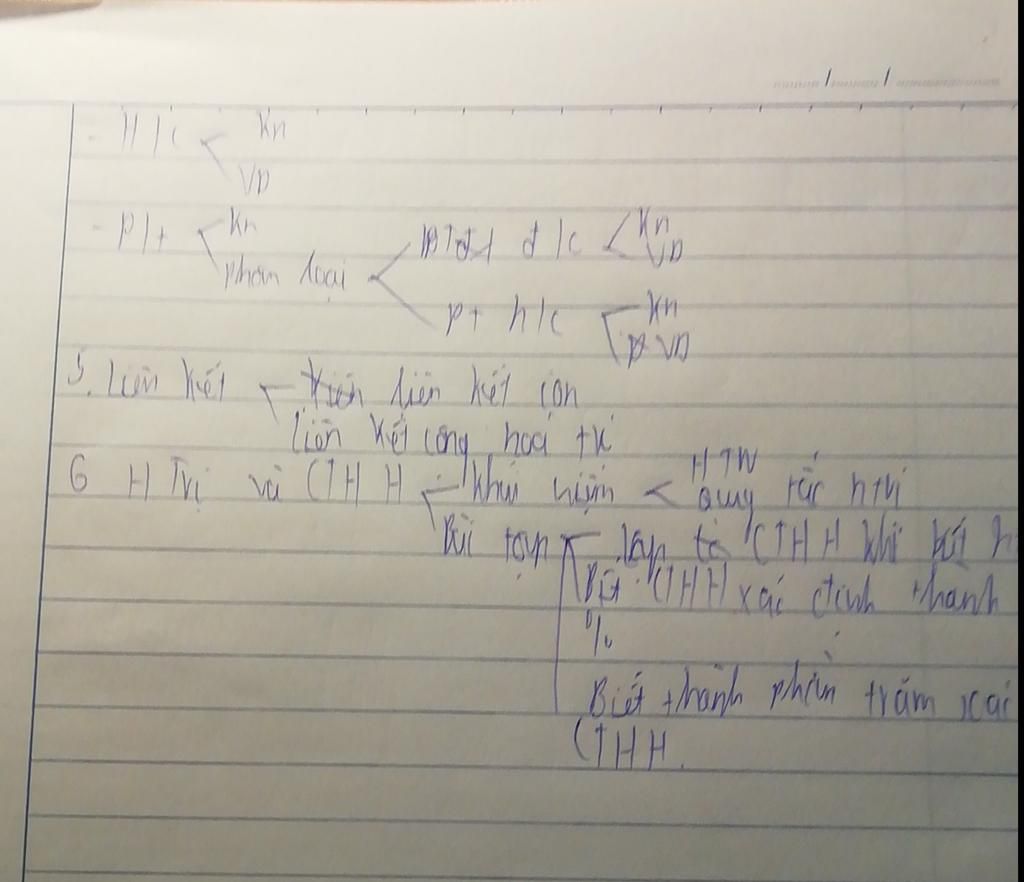 - H/c Kn
VD
- P/t Kn
phân loại
ptử đ/c Kn
VD
pt h/c Kn
VD
5. Liên kết liên kết ion
liên kết cộng hoá trị
6 H Trị và CTHH khái niệm HTrị
quy tắc htrị
Bài toán lập CTHH khi biết h
Biết CTHH xác định thành
%
Biết thành phần trăm xác
CTHH.